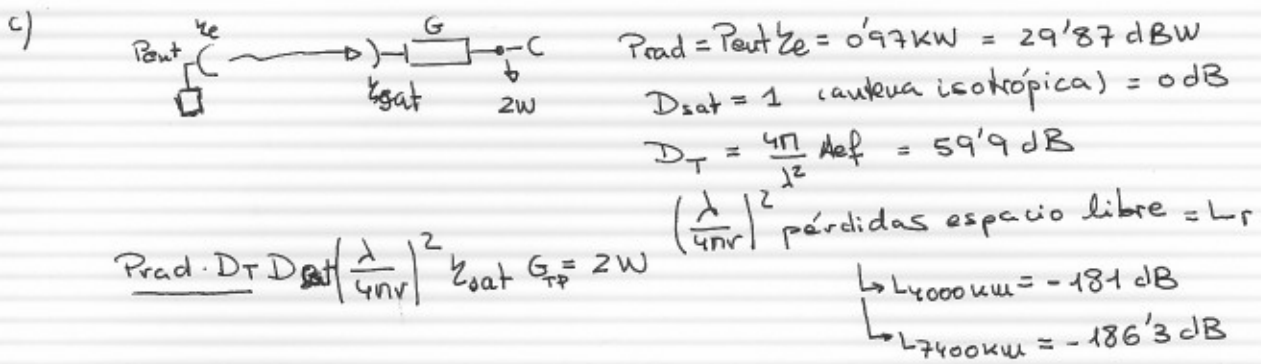 c)
Pout ηe G C
ηsat 2W
Prad = Pout ηe = 0'97KW = 29'87 dBW
Dsat = 1 (antena isotrópica) = 0 dB
D_T = 4π/λ² Aef = 59'9 dB
(λ/4πr)² pérdidas espacio libre = Lr
Prad · D_T Dsat (λ/4πr)² ηsat G_TP = 2W
↳ L4000km = -181 dB
↳ L7400km = -186'3 dB